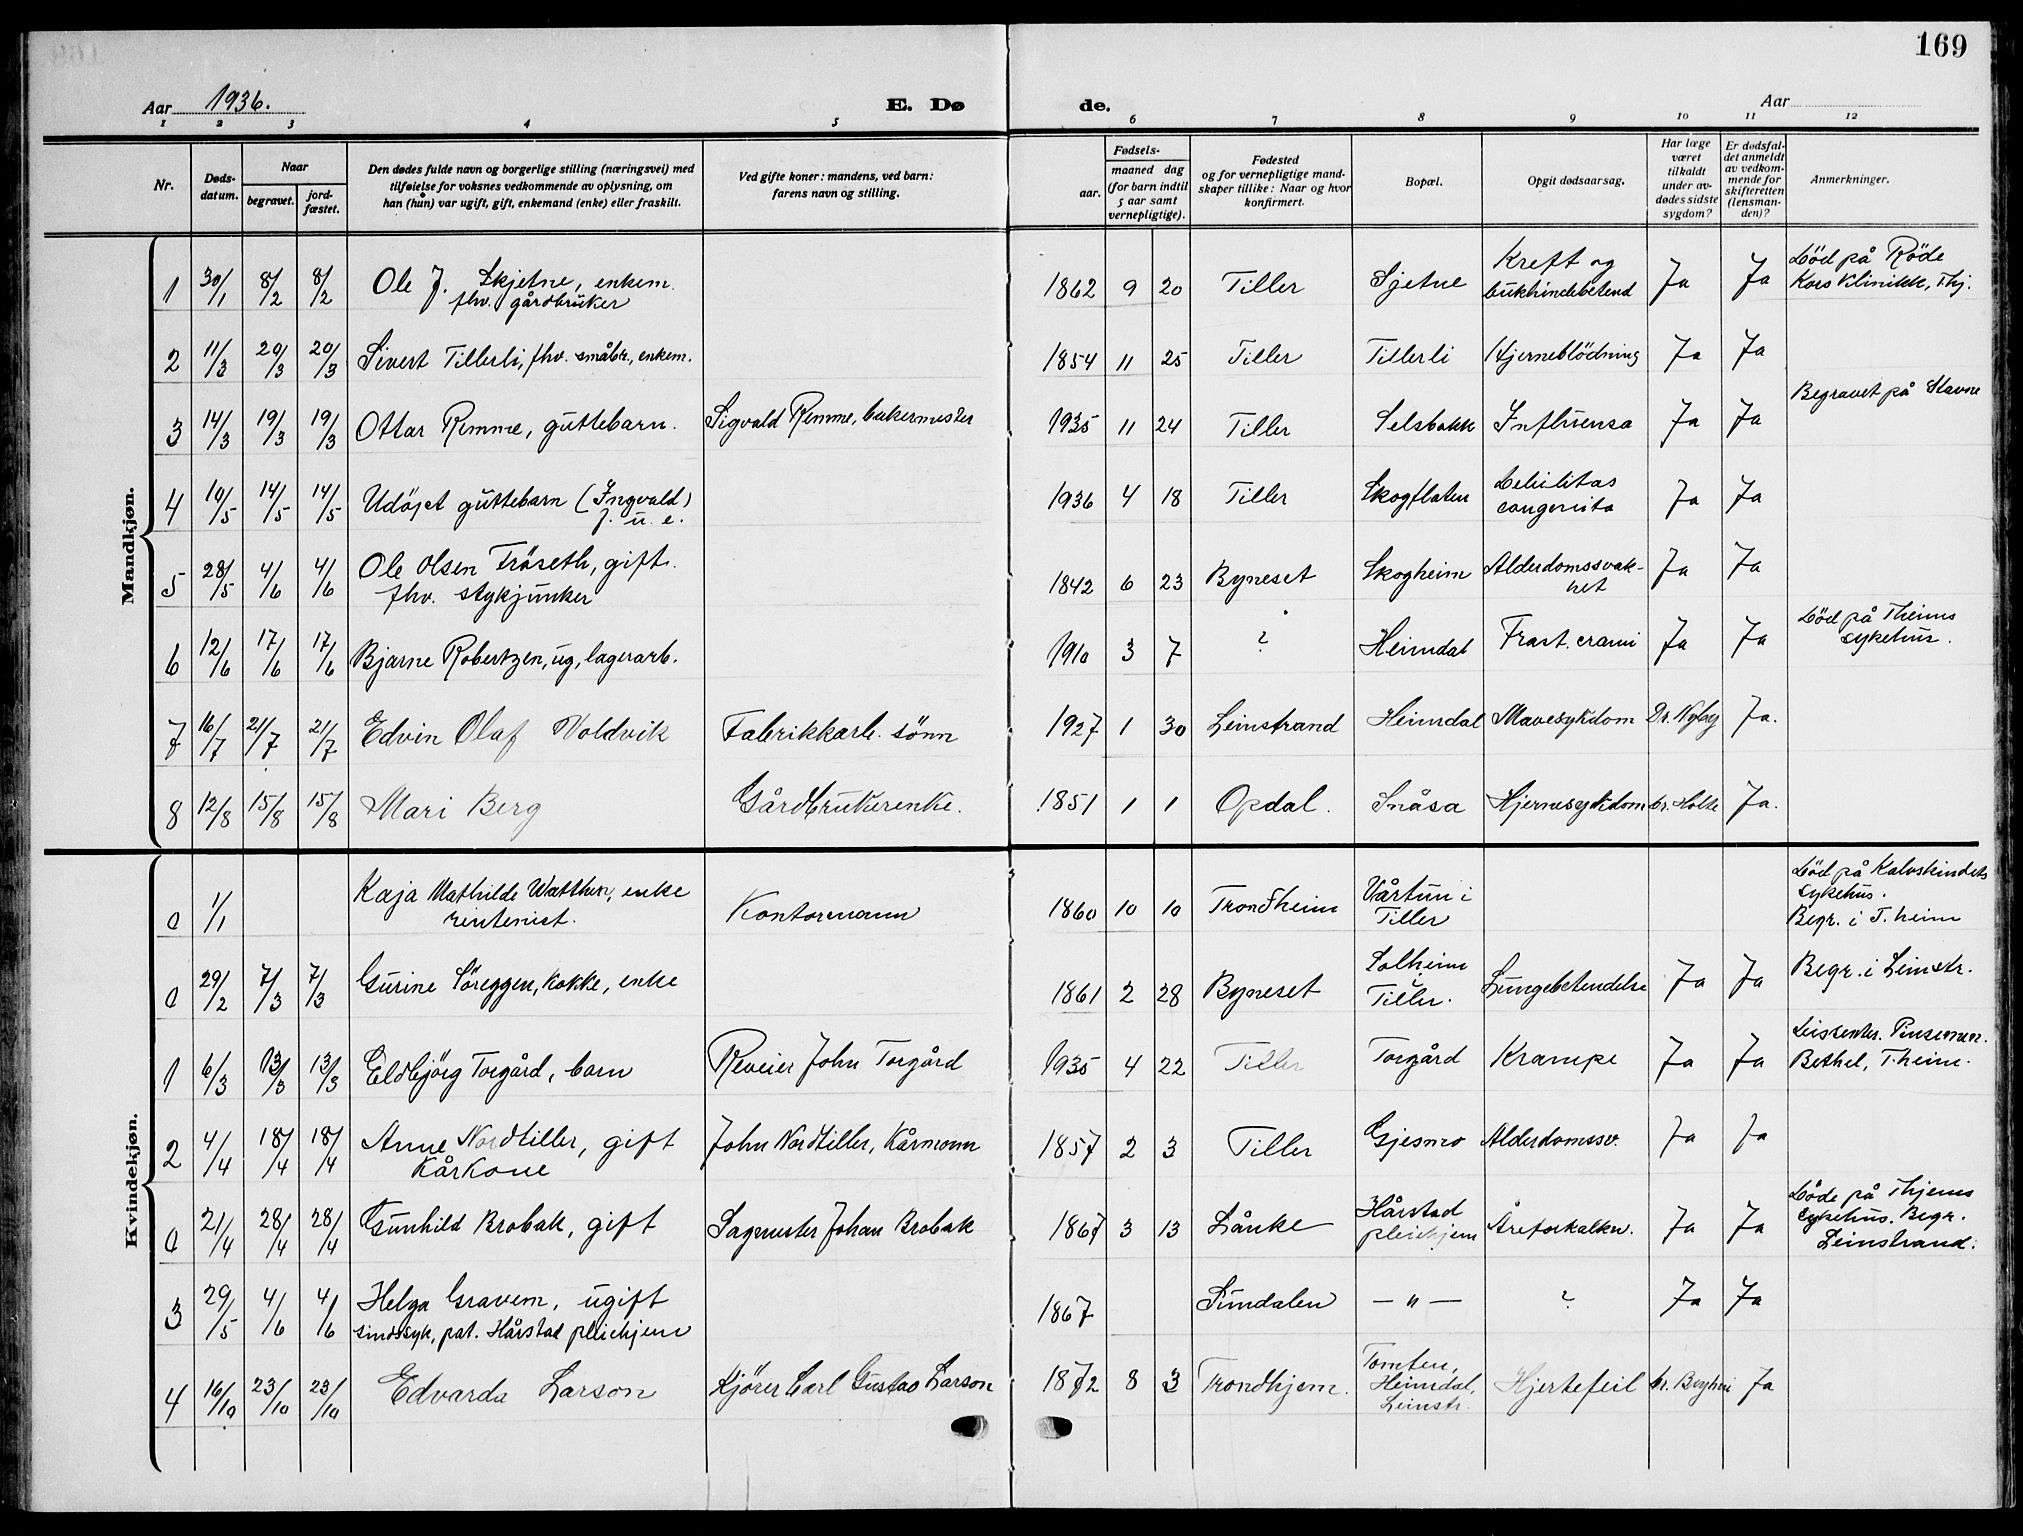 169
Aar 1936. E. Dø de. Aar
1 2 3 4 5 6 7 8 9 10 11 12
Nr.
Døds-datum.
Naar
begravet.
jord-fæstet.
Den dødes fulde navn og borgerlige stilling (næringsvei) med
tilføielse for voksnes vedkommende av oplysning, om
han (hun) var ugift, gift, enkemand (enke) eller fraskilt.
Ved gifte koner: mandens, ved barn:
farens navn og stilling.
Fødsels-
aar.
maaned dag
(for barn indtil
5 aar samt
vernepligtige).
Fødested
og for vernepligtige mand-
skaper tillike: Naar og hvor
konfirmert.
Bopæl.
Opgit dødsaarsag.
Har læge
været
tilkaldt
under av-
dødes sidste
sygdom?
Er dødsfal-
det anmeldt
av vedkom-
mende for
skifteretten
(lensman-
den)?
Anmerkninger.
Mandkjøn.
1 30/1 8/2 8/2 Ole J. Skjetne, enkem. fhv. gårdbruker 1862 9 20 Tiller Sjetne Kreft og bukhindebetend Ja Ja Död på Röde Kors Klinikk, Thj.
2 11/3 20/3 20/3 Sivert Tillerli, fhv. småbr., enkem. 1854 11 25 Tiller Tillerli Hjerneblödning Ja Ja
3 14/3 19/3 19/3 Ottar Remme, guttebarn. Sigvald Remme, bakermester 1935 11 24 Tiller Selsbakk Influensa Ja Ja Begravet på Stavne
4 10/5 14/5 14/5 Udöpt guttebarn (Ingvald) f. u. e. 1936 4 18 Tiller Skogflaten Debilitas congenita Ja Ja
5 28/5 4/6 4/6 Ole Olsen Fröseth, gift. fhv. stykjunker 1842 6 23 Byneset Skogheim Alderdomssvak-het Ja Ja
6 12/6 17/6 17/6 Bjarne Robertzen, ug, lagerarb. 1910 3 7 ? Heimdal Fract. crani Ja Ja Död på Theims sykehus.
7 16/7 21/7 21/7 Edvin Olaf Voldvik Fabrikkarb. sönn 1927 1 30 Leinstrand Heimdal Mavesykdom Dr. Nyby Ja.
8 12/8 15/8 15/8 Mari Berg Gårdbrukerenke. 1851 1 1 Opdal. Snåsa Hjernesykdom Dr. Holte Ja.
Kvindekjøn.
0 1/1 Kaja Mathilde Watthen, enke rentenist. Kontormann 1860 10 10 Trondheim Vårtun i Tiller Död på Kalvskindets sykehus. Begr. i T.heim
0 29/2 7/3 7/3 Gurine Söreggen, kokke, enke 1861 2 28 Byneset Solheim i Tiller. Lungebetendelse Ja Ja Begr. i Leinstr.
1 6/3 13/3 13/3 Eldbjörg Torgård, barn Reveier John Torgård 1935 4 22 Tiller Torgård Krampe Ja Ja Dissenter. Pinsemen. Bethel, T.heim.
2 4/4 18/4 18/4 Anne Nordtiller, gift kårkone John Nordtiller, Kårmann 1857 2 3 Tiller Gjesmo Alderdomssv. Ja Ja
0 21/4 28/4 28/4 Gunhild Brobak, gift Sagmester Johan Brobak 1867 3 13 Lånke Hårstad pleiehjem Åreforkalkn. Ja Ja Döde på Thjems sykehus. Begr. Leinstrand.
3 29/5 4/6 4/6 Helga Gravem, ugift sindssyk, pat. Hårstad pleiehjem 1867 Sundalen — " — ? Ja Ja
4 16/10 23/10 23/10 Edvarda Larson Kjörer Carl Gustav Larson 1872 8 3 Trondhjem. Tomten, Heimdal, Leinstr. Hjertefeil Dr. Ja